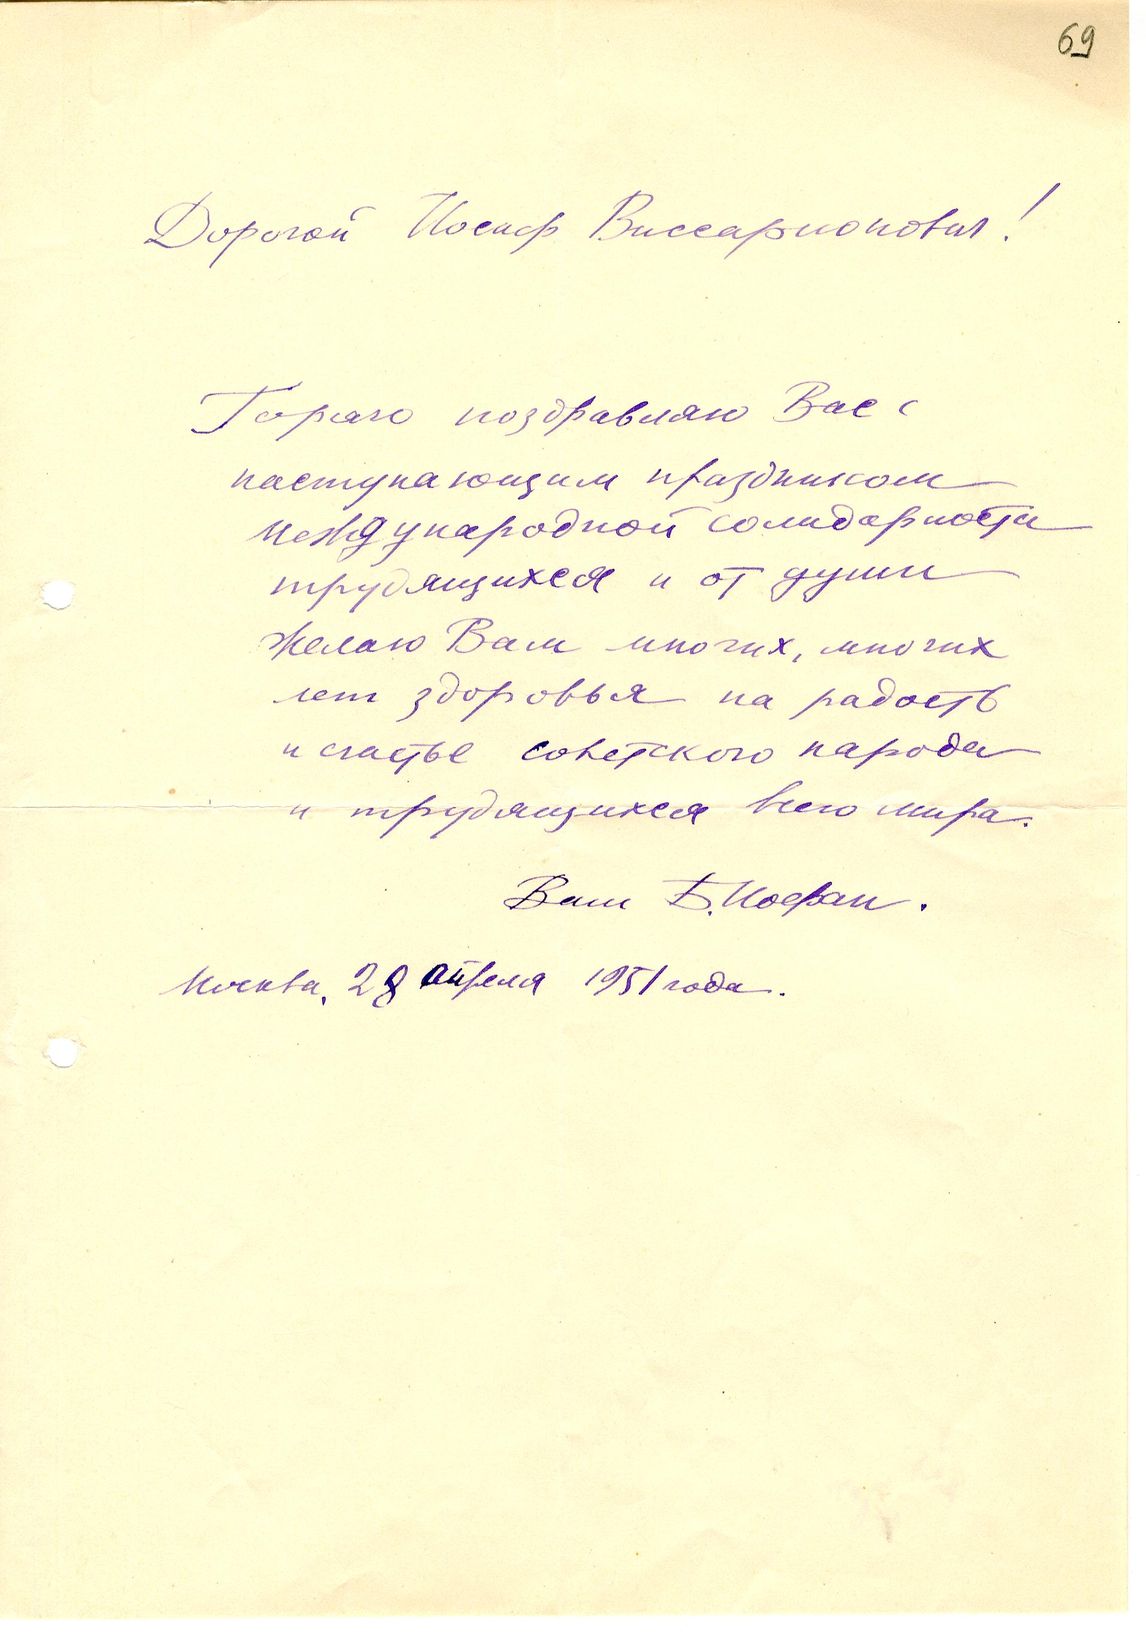 69
Дорогой Иосиф Виссарионович!
Горячо поздравляю Вас с
наступающим праздником
международной солидарности
трудящихся и от души
желаю Вам многих, многих
лет здоровья на радость
и счастье советского народа
и трудящихся всего мира.
Ваш Б. Иофан.
Москва, 28 апреля 1951 года.